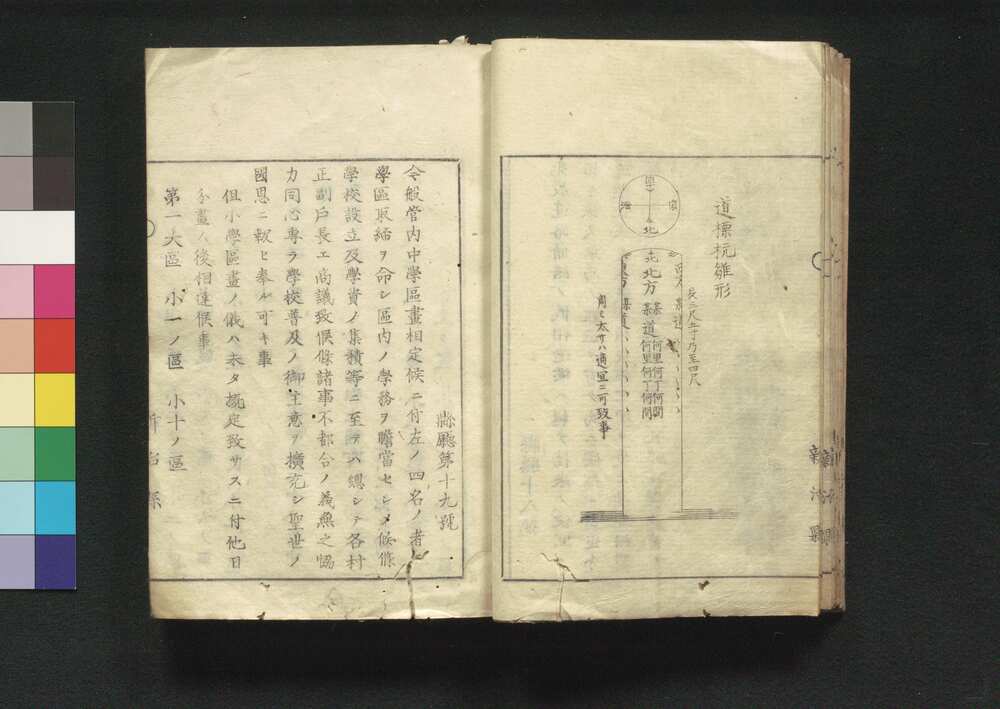 道標杭雛形
長二尺五寸乃至四尺
北
北方
某道
何里何丁何間
何里何丁何間
周囲太サハ適宜ニ可致事
新治縣
縣廳第十九號
今般管内中學區畫相定候ニ付左ノ四名ノ者ヘ
學區取締ヲ命シ區内ノ學務ヲ擔當セシメ候條
學校設立及學費ノ集積等ニ至テハ總シテ各村
正副戸長エ商議致候條諸事不都合ノ義無之協
力同心專ラ學校普及ノ御主意ヲ擴充シ聖世ノ
國恩ニ報ヒ奉ル可キ事
但小學區畫ノ儀ハ未タ擬定致サスニ付他日
分畫ノ後相達候事
第一大區 小一ノ區 小十ノ區